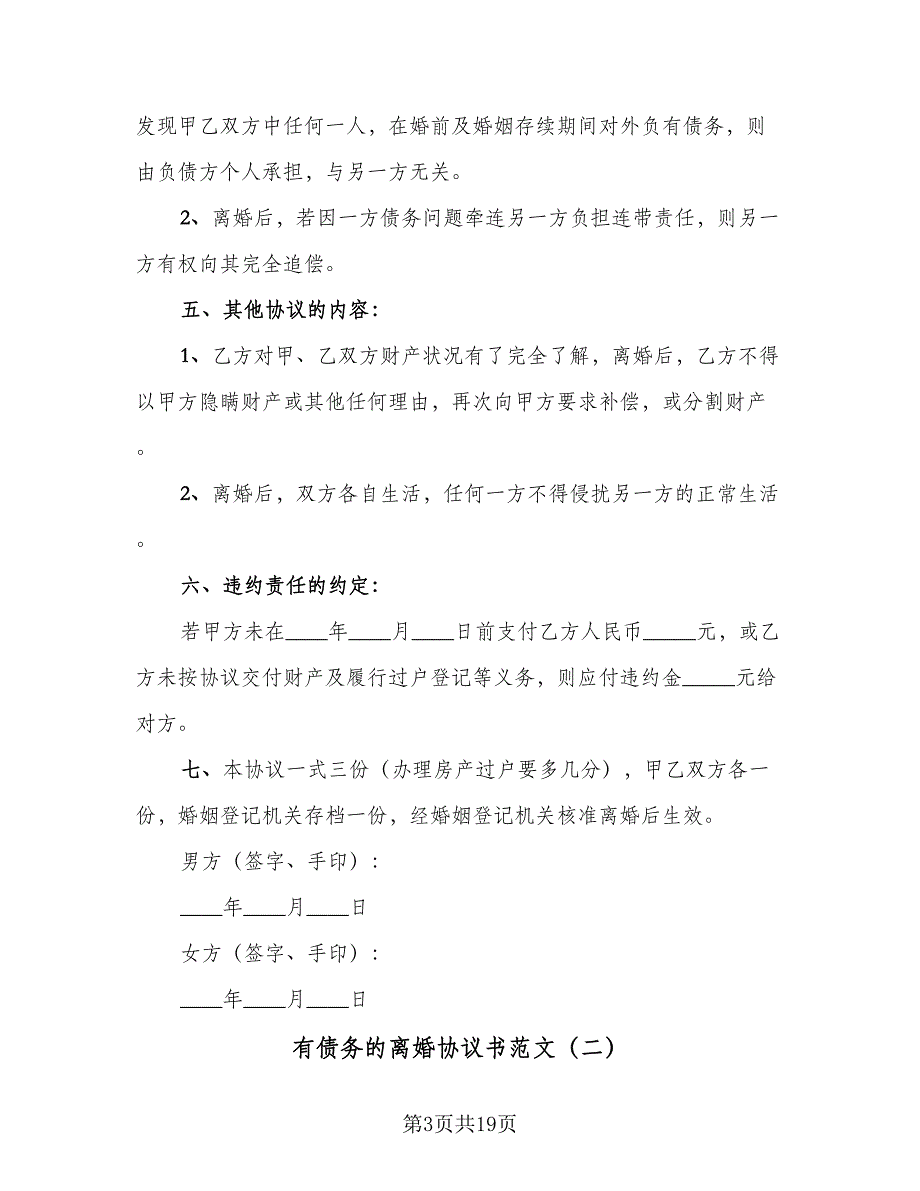 发现甲乙双方中任何一人，在婚前及婚姻存续期间对外负有债务，则
由负债方个人承担，与另一方无关。
2、离婚后，若因一方债务问题牵连另一方负担连带责任，则另一
方有权向其完全追偿。
五、其他协议的内容：
1、乙方对甲、乙双方财产状况有了完全了解，离婚后，乙方不得
以甲方隐瞒财产或其他任何理由，再次向甲方要求补偿，或分割财产
。
2、离婚后，双方各自生活，任何一方不得侵扰另一方的正常生活
。
六、违约责任的约定：
若甲方未在____年____月____日前支付乙方人民币_____元，或乙
方未按协议交付财产及履行过户登记等义务，则应付违约金_____元给
对方。
七、本协议一式三份（办理房产过户要多几分），甲乙双方各一
份，婚姻登记机关存档一份，经婚姻登记机关核准离婚后生效。
男方（签字、手印）：
____年____月____日
女方（签字、手印）：
____年____月____日
有债务的离婚协议书范文（二）
第3页共19页